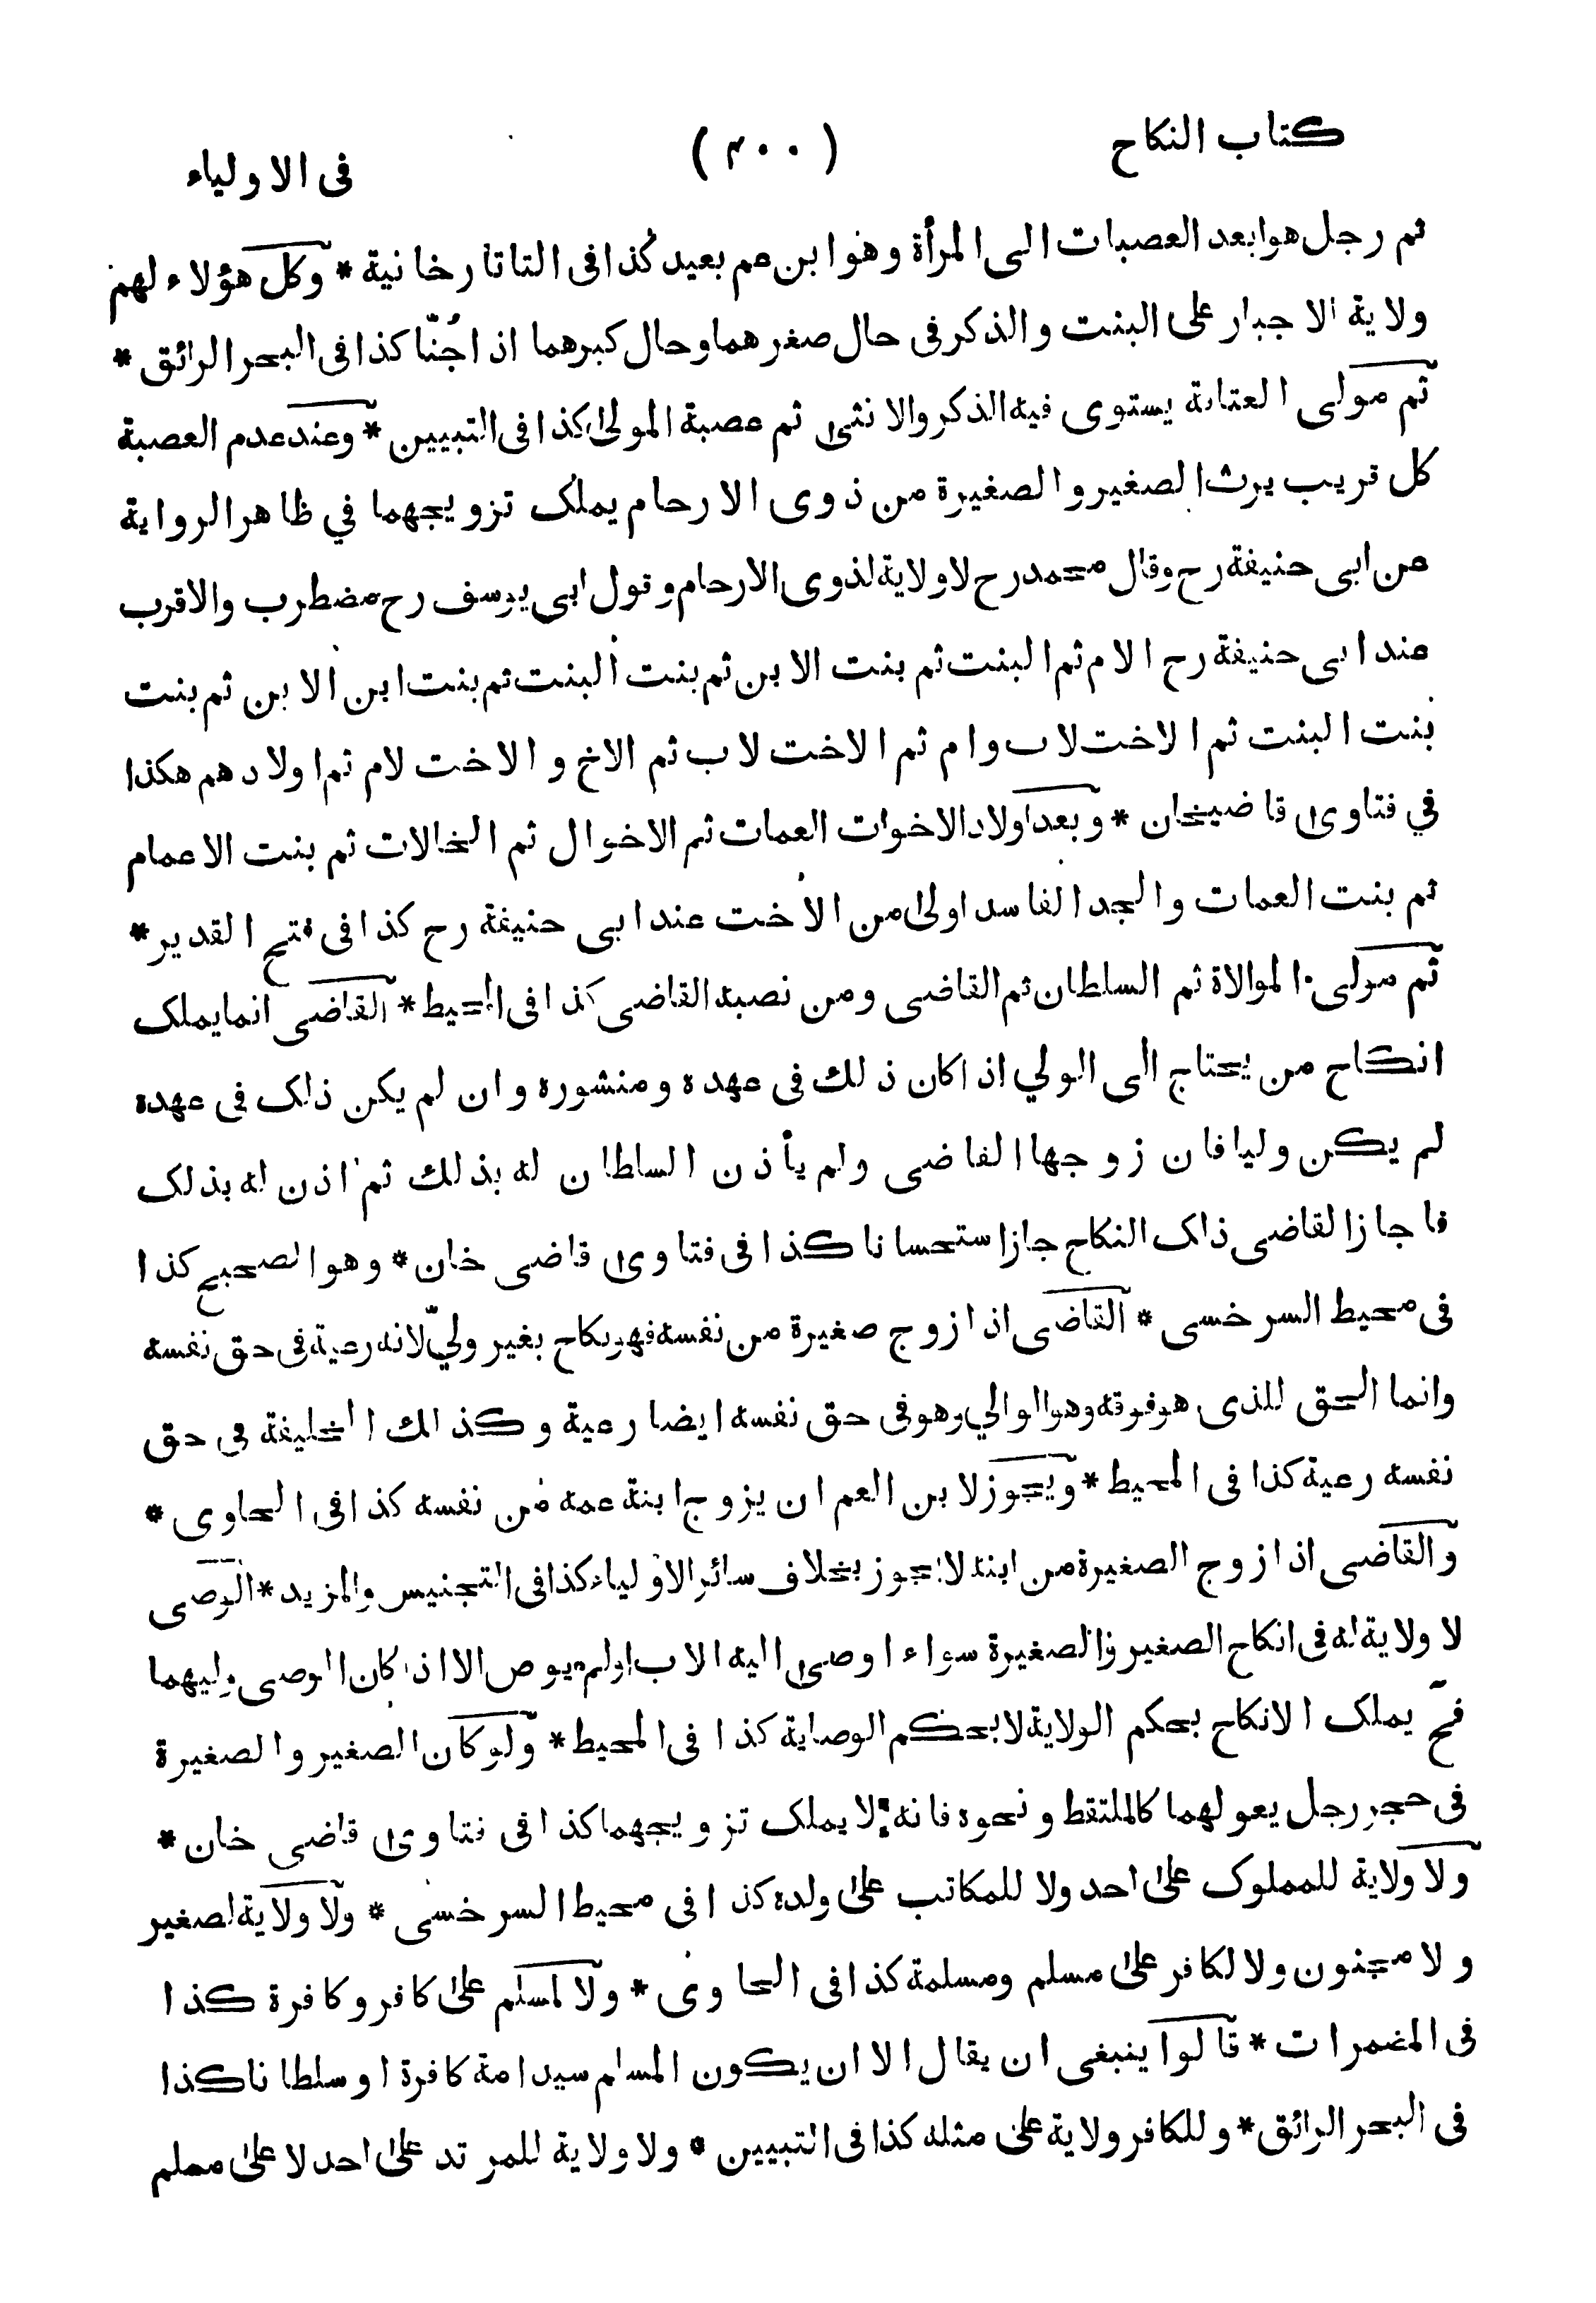 كتاب النكاح (۴۰۰) فى الاولياء
ثم رجل هو ابعد العصبات الى المرأة وهو ابن عم بعيد كذا فى التاتارخانية * وكل هؤلاء لهم
ولاية الاجبار على البنت والذكر فى حال صغرهما وحال كبرهما اذا جُنّا كذا فى البحر الرائق *
ثم مولى العتاقة يستوى فيه الذكر والانثى ثم عصبة المولى كذا فى التبيين * وعند عدم العصبة
كل قريب يرث الصغير والصغيرة من ذوى الارحام يملك تزويجهما في ظاهر الرواية
عن ابى حنيفة رح وقال محمد رح لا ولاية لذوى الارحام وقول ابى يوسف رح مضطرب والاقرب
عند ابى حنيفة رح الام ثم البنت ثم بنت الابن ثم بنت البنت ثم بنت ابن الابن ثم بنت
بنت البنت ثم الاخت لاب وام ثم الاخت لاب ثم الاخ والاخت لام ثم اولادهم هكذا
في فتاوى قاضيخان * وبعد اولاد الاخوات العمات ثم الاخوال ثم الخالات ثم بنت الاعمام
ثم بنت العمات والجد الفاسد اولى من الأخت عند ابى حنيفة رح كذا فى فتح القدير *
ثم مولى الموالاة ثم السلطان ثم القاضى ومن نصبه القاضى كذا فى المحيط * القاضى انما يملك
انكاح من يحتاج الى الولي اذا كان ذلك فى عهده ومنشوره وان لم يكن ذلك فى عهده
لم يكن وليا فان زوجها القاضى ولم يأذن السلطان له بذلك ثم اذن له بذلك
فاجاز القاضى ذلك النكاح جاز استحسانا كذا فى فتاوى قاضى خان * وهو الصحيح كذا
فى محيط السرخسى * القاضى اذا زوج صغيرة من نفسه فهو نكاح بغير وليّ لانه رعية فى حق نفسه
وانما الحق للذى هو فوقه وهو الوالي وهو فى حق نفسه ايضا رعية وكذلك الخليفة فى حق
نفسه رعية كذا فى المحيط * ويجوز لابن العم ان يزوج ابنة عمه من نفسه كذا فى الحاوى *
والقاضى اذا زوج الصغيرة من ابنه لا يجوز بخلاف سائر الاولياء كذا فى التجنيس والمزيد * الوصى
لا ولاية له فى انكاح الصغير والصغيرة سواء اوصى اليه الاب او لم يوص الا اذا كان الوصى وليهما
فحّ يملك الانكاح بحكم الولاية لا بحكم الوصاية كذا فى المحيط * ولو كان الصغير والصغيرة
فى حجر رجل يعولهما كالملتقط ونحوه فانه لا يملك تزويجهما كذا فى فتاوى قاضى خان *
ولا ولاية للمملوك على احد ولا للمكاتب على ولده كذا فى محيط السرخسى * ولا ولاية لصغير
ولا مجنون ولا لكافر على مسلم ومسلمة كذا فى الحاوى * ولا لمسلم على كافر وكافرة كذا
فى المضمرات * قالوا ينبغى ان يقال الا ان يكون المسلم سيد امة كافرة او سلطانا كذا
فى البحر الرائق * وللكافر ولاية على مثله كذا فى التبيين * ولا ولاية للمرتد على احد لا على مسلم